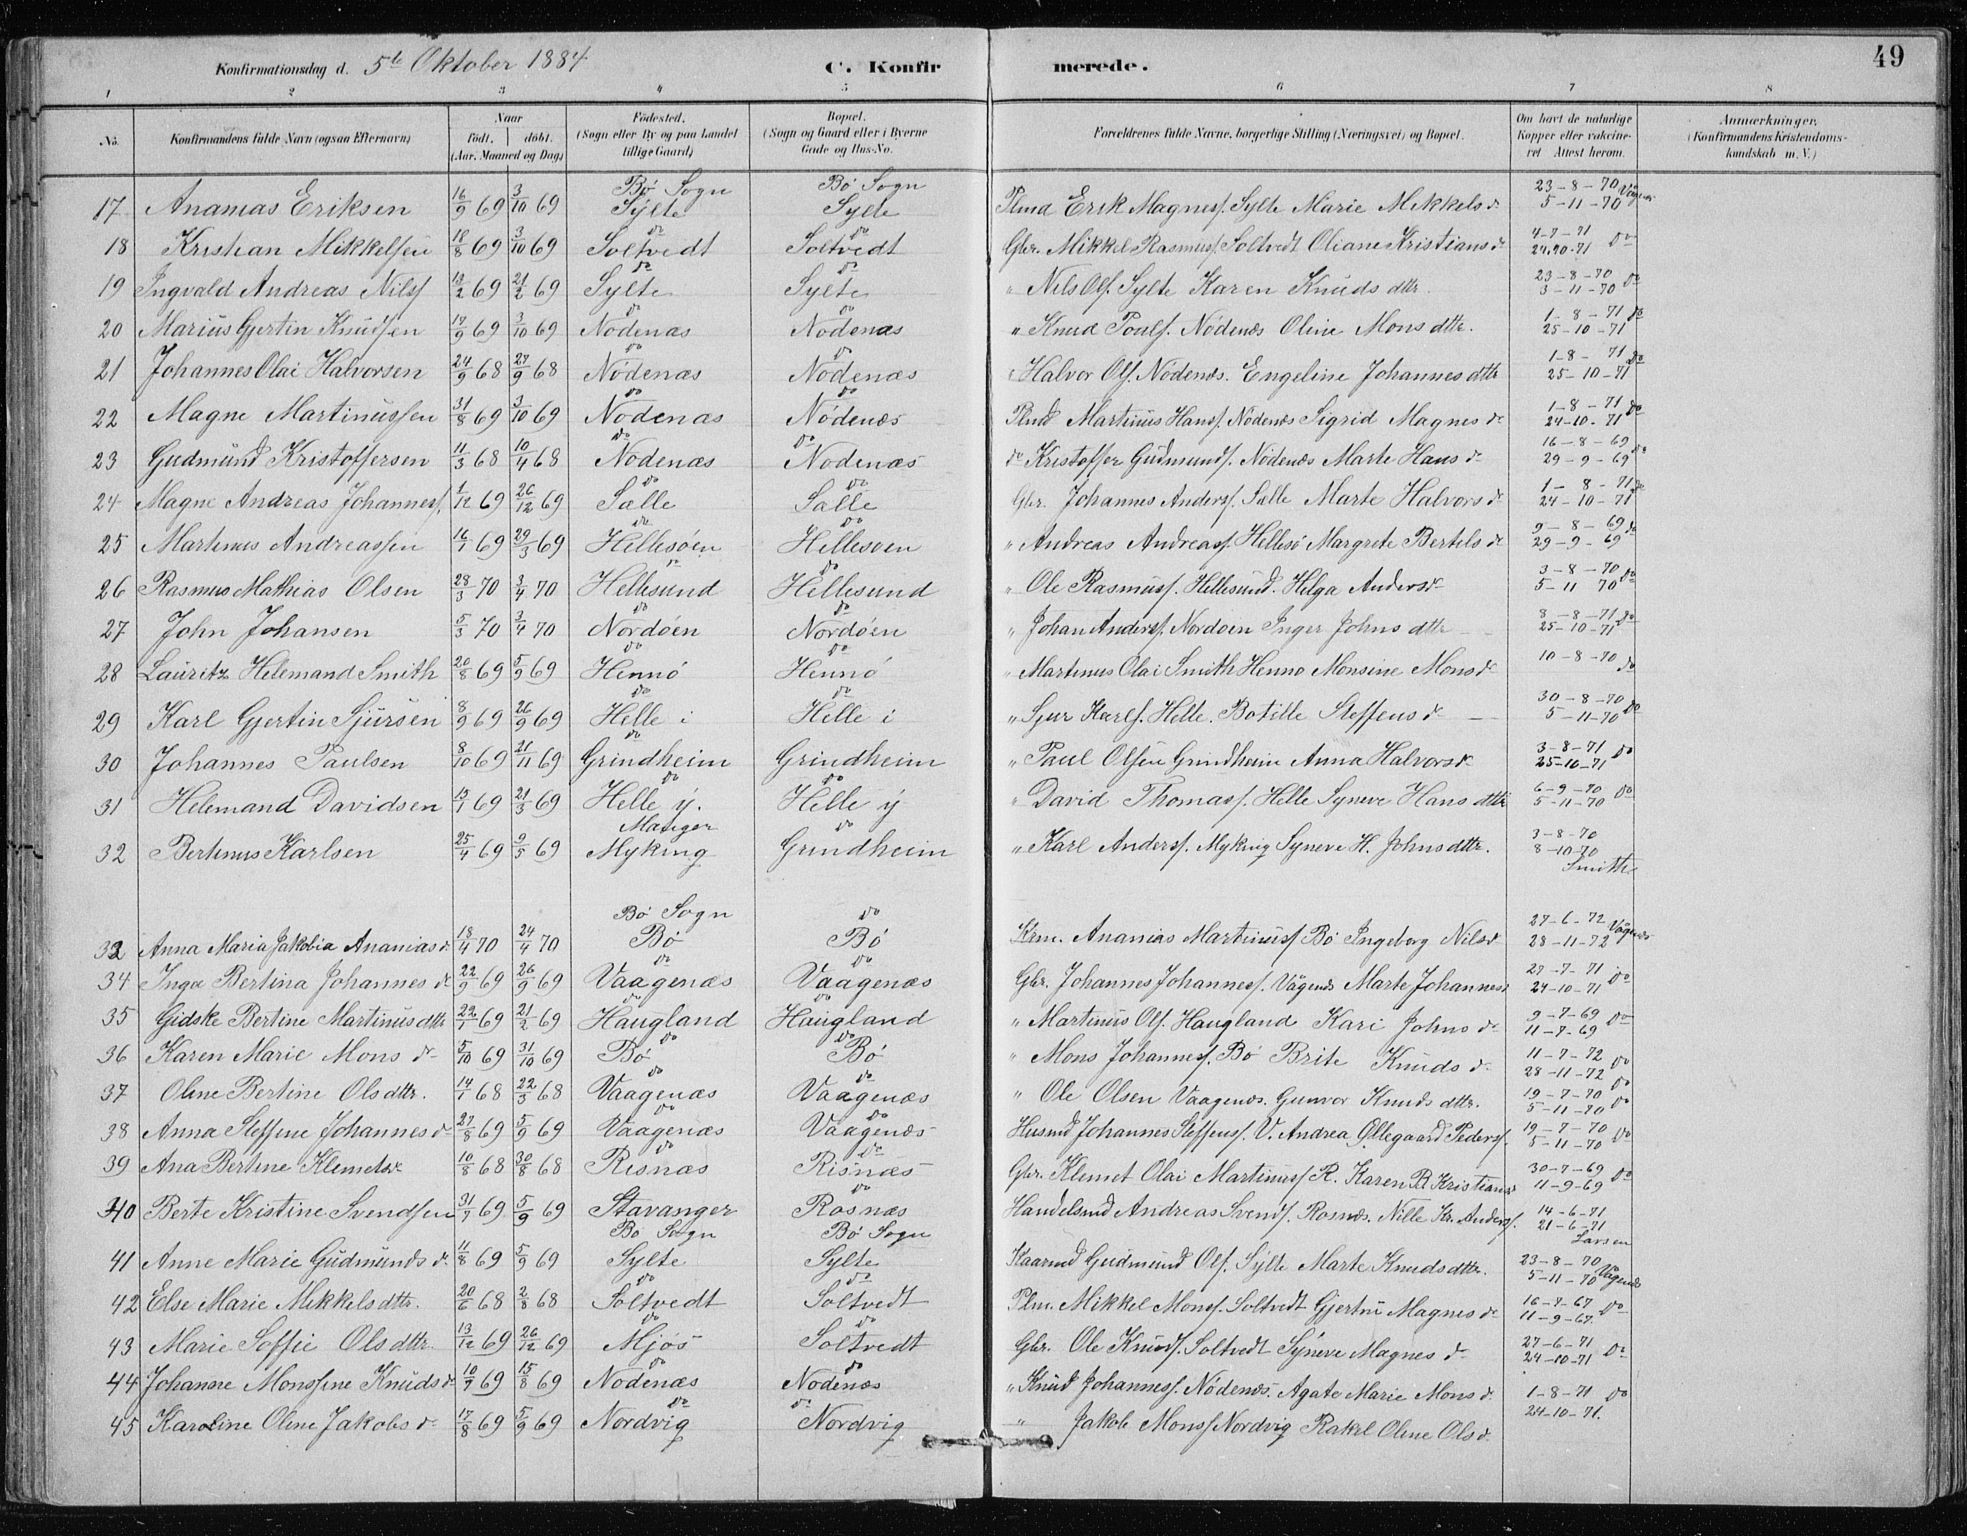 49
Konfirmationsdag d. 5te Oktober 1884 C. Konfirmerede.
1 2 3 4 5 6 7 8
No. Konfirmandens fulde Navn (ogsaa Efternavn) Naar født. døbt. (Aar, Maaned og Dag) Fødested. (Sogn eller By og paa Landet tillige Gaard) Bopæl. (Sogn og Gaard eller i Byerne Gade og Hus-No. Forældrenes fulde Navne, borgerlige Stilling (Næringsvei) og Bopæl. Om havt de naturlige Kopper eller vaccineret Attest herom. Anmærkninger. (Konfirmandens Kristendomskundskab m. V.)
17 Ananias Eriksen 16/9 69 3/10 69 Bö Sogn Sylte Bö Sogn Sylte Plmd Erik Magness. Sylte Marie Mikkels d. 23-8-70 5-11-70 Vågenes
18 Kristian Mikkelsen 18/8 69 3/10 69 do Soltvedt do Soltvedt Gbr. Mikkel Rasmuss. Soltvedt Oliane Kristians d 4-7-71 24-10-71 do
19 Ingvald Andreas Nilss 13/2 69 21/2 69 do Sylte do Sylte " Nils Ols. Sylte Karen Knuds dttr. 23-8-70 5-11-70 do
20 Marius Gjertin Knudsen 17/9 69 3/10 69 do Nödenæs do Nödenæs " Knud Pouls. Nödenæs Oline Mons dttr. 1-8-71 25-10-71 do
21 Johannes Olai Halvorsen 24/9 68 27/9 68 do Nödenæs do Nödenæs " Halvor Ols. Nödenæs. Engeline Johannes dttr 1-8-71 25-10-71 do
22 Magne Martinussen 31/8 69 3/10 69 do Nödenæs do Nödenæs Plmd Martinus Hans. Nödenæs Sigrid Magnes d 1-8-71 24-10-71 do
23 Gudmund Kristoffersen 11/3 68 10/4 68 do Nödenæs do Nödenæs do Kristoffer Gudmunds. Nödenæs Marte Hans d 16-8-69 29-9-69 do
24 Magne Andreas Johanness. 1/12 69 26/12 69 do Sælle do Sælle Gbr. Johannes Anderss. Sælle Marte Halvors d 1-8-71 24-10-71 do
25 Martinus Andreassen 16/1 69 29/3 69 do Hellesöen do Hellesöen " Andreas Andreass. Hellesö Margrete Bertels d 9-8-69 29-9-69 do
26 Rasmus Mathias Olsen 28/3 70 3/4 70 do Hellesund do Hellesund " Ole Rasmuss. Hellesund. Helga Anders d 3-8-70 5-11 70 do
27 John Johansen 5/3 70 3/4 70 do Nordöen do Nordöen " Johan Anderss. Nordöen Inger Johns dttr 8-8-71 25-10-71 do
28 Lauritz Helemand Smith 20/8 69 5/9 69 do Hennö do Hennö " Martinus Olai Smith Hennö Monsine Mons d 10-8-70 do
29 Karl Gjertin Sjursen 8/9 69 26/9 69 do Helle i do Helle i " Sjur Karls. Helle. Botille Steffens d 30-8-70 5-11-70 do
30 Johannes Paulsen 8/10 69 21/11 69 do Grindheim Grindheim " Paul Olsen Grindheim Anna Halvors d 3-8-71 25-10-71 do
31 Helemand Davidsen 13/1 69 21/3 69 do Helle y. do Helle y " David Thomass. Helle Syneve Hans dttr 6-9-70 5-11-70 do
32 Bertinus Karlsen 25/4 69 9/5 69 Manger Myking do Grindheim " Karl Anderss. Myking Syneve H. Johns dttr. 3-8-70 8-10-70 Smith
33 Anna Maria Jakobia Ananias d 18/4 70 24/4 70 Bö Sogn Bö do Bö Krm. Ananias Martinuss Bö Ingeborg Nils d 27-6-72 28-11-72 Vågenes
34 Inga Bertina Johannes d 22/9 69 26/9 69 do Vaagenæs do Vaagenæs Gbr. Johannes Johanness. Vågenæs Marte Johannes d 27-7-71 24-10-71 do
35 Gidske Bertine Martinus dttr 22/1 69 21/2 69 do Haugland do Haugland " Martinus Ols. Haugland Kari Johns d 9-7-69 11-7-69 do
36 Karen Marie Mons d 5/10 69 31/10 69 do Bö do Bö " Mons Johanness. Bö Brite Knuds d 11-7-72 28-11-72 do
37 Oline Bertine Ols dttr. 14/1 68 22/3 68 do Vaagenæs do Vaagenæs " Ole Olsen Vaagenæs. Gunvor Knuds dttr. 19-7-70 5-11-70 do
38 Anna Steffine Johannes d 27/8 69 5/9 69 do Vaagenæs do Vaagenæs Husmd Johannes Steffens. V. Andrea Ollegaard Peders. 19-7-70 5-11-70 do
39 Ana Bertine Klemets d 10/8 68 30/8 68 do Risnæs do Risnæs Gbr. Klemet Olai Martinuss R. Karen B Kristians d 30-7-69 11-9-69 do
40 Berte Kristine Svendsen 31/7 69 5/9 69 Stavanger do Rosnæs Handelsmd Andreas Svends. Rosnæs. Nille Kr. Anders. 14-6-71 21-6-71 Larsen
41 Anne Marie Gudmunds d. 11/8 69 5/9 69 Bö Sogn Sylte Bö Sogn Sylte Kaarmd Gudmund Ols. Sylte Marte Knuds dttr. 23-8-70 5-11-70 Vågenes
42 Else Marie Mikkels dttr. 20/6 68 2/8 68 do Soltvedt do Soltvedt Plm. Mikkel Mons. Soltvedt Gjertru Magnes d 16-7-67 11-9-67. do
43 Marie Soffie Ols dttr. 13/12 69 26/12 69 do Mjös do Soltvedt Gbr. Ole Knuds. Soltvedt Syneve Magnes d 27-6-71 24-10-71 do
44 Johanne Monssine Knuds d 10/7 69 15/8 69 do Nödenæs do Nödenæs " Knud Johanness. Nödenæs. Agate Marie Mons d 1-8-71 24-10-71. do
45 Karoline Oline Jakobs d 17/8 69 5/9 69 do Nordvig do Nordvig " Jakob Mons. Nordvig Rakel Oline Ols d.